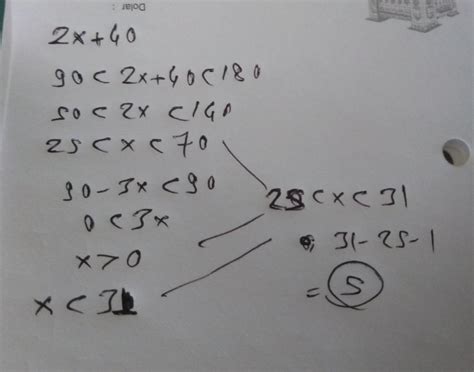 Dolar :
2x+40
90<2x+40<180
50<2x<140
25<x<70
90-3x<90
0<3x
x>0
x<31
25<x<31
31-25-1
=5